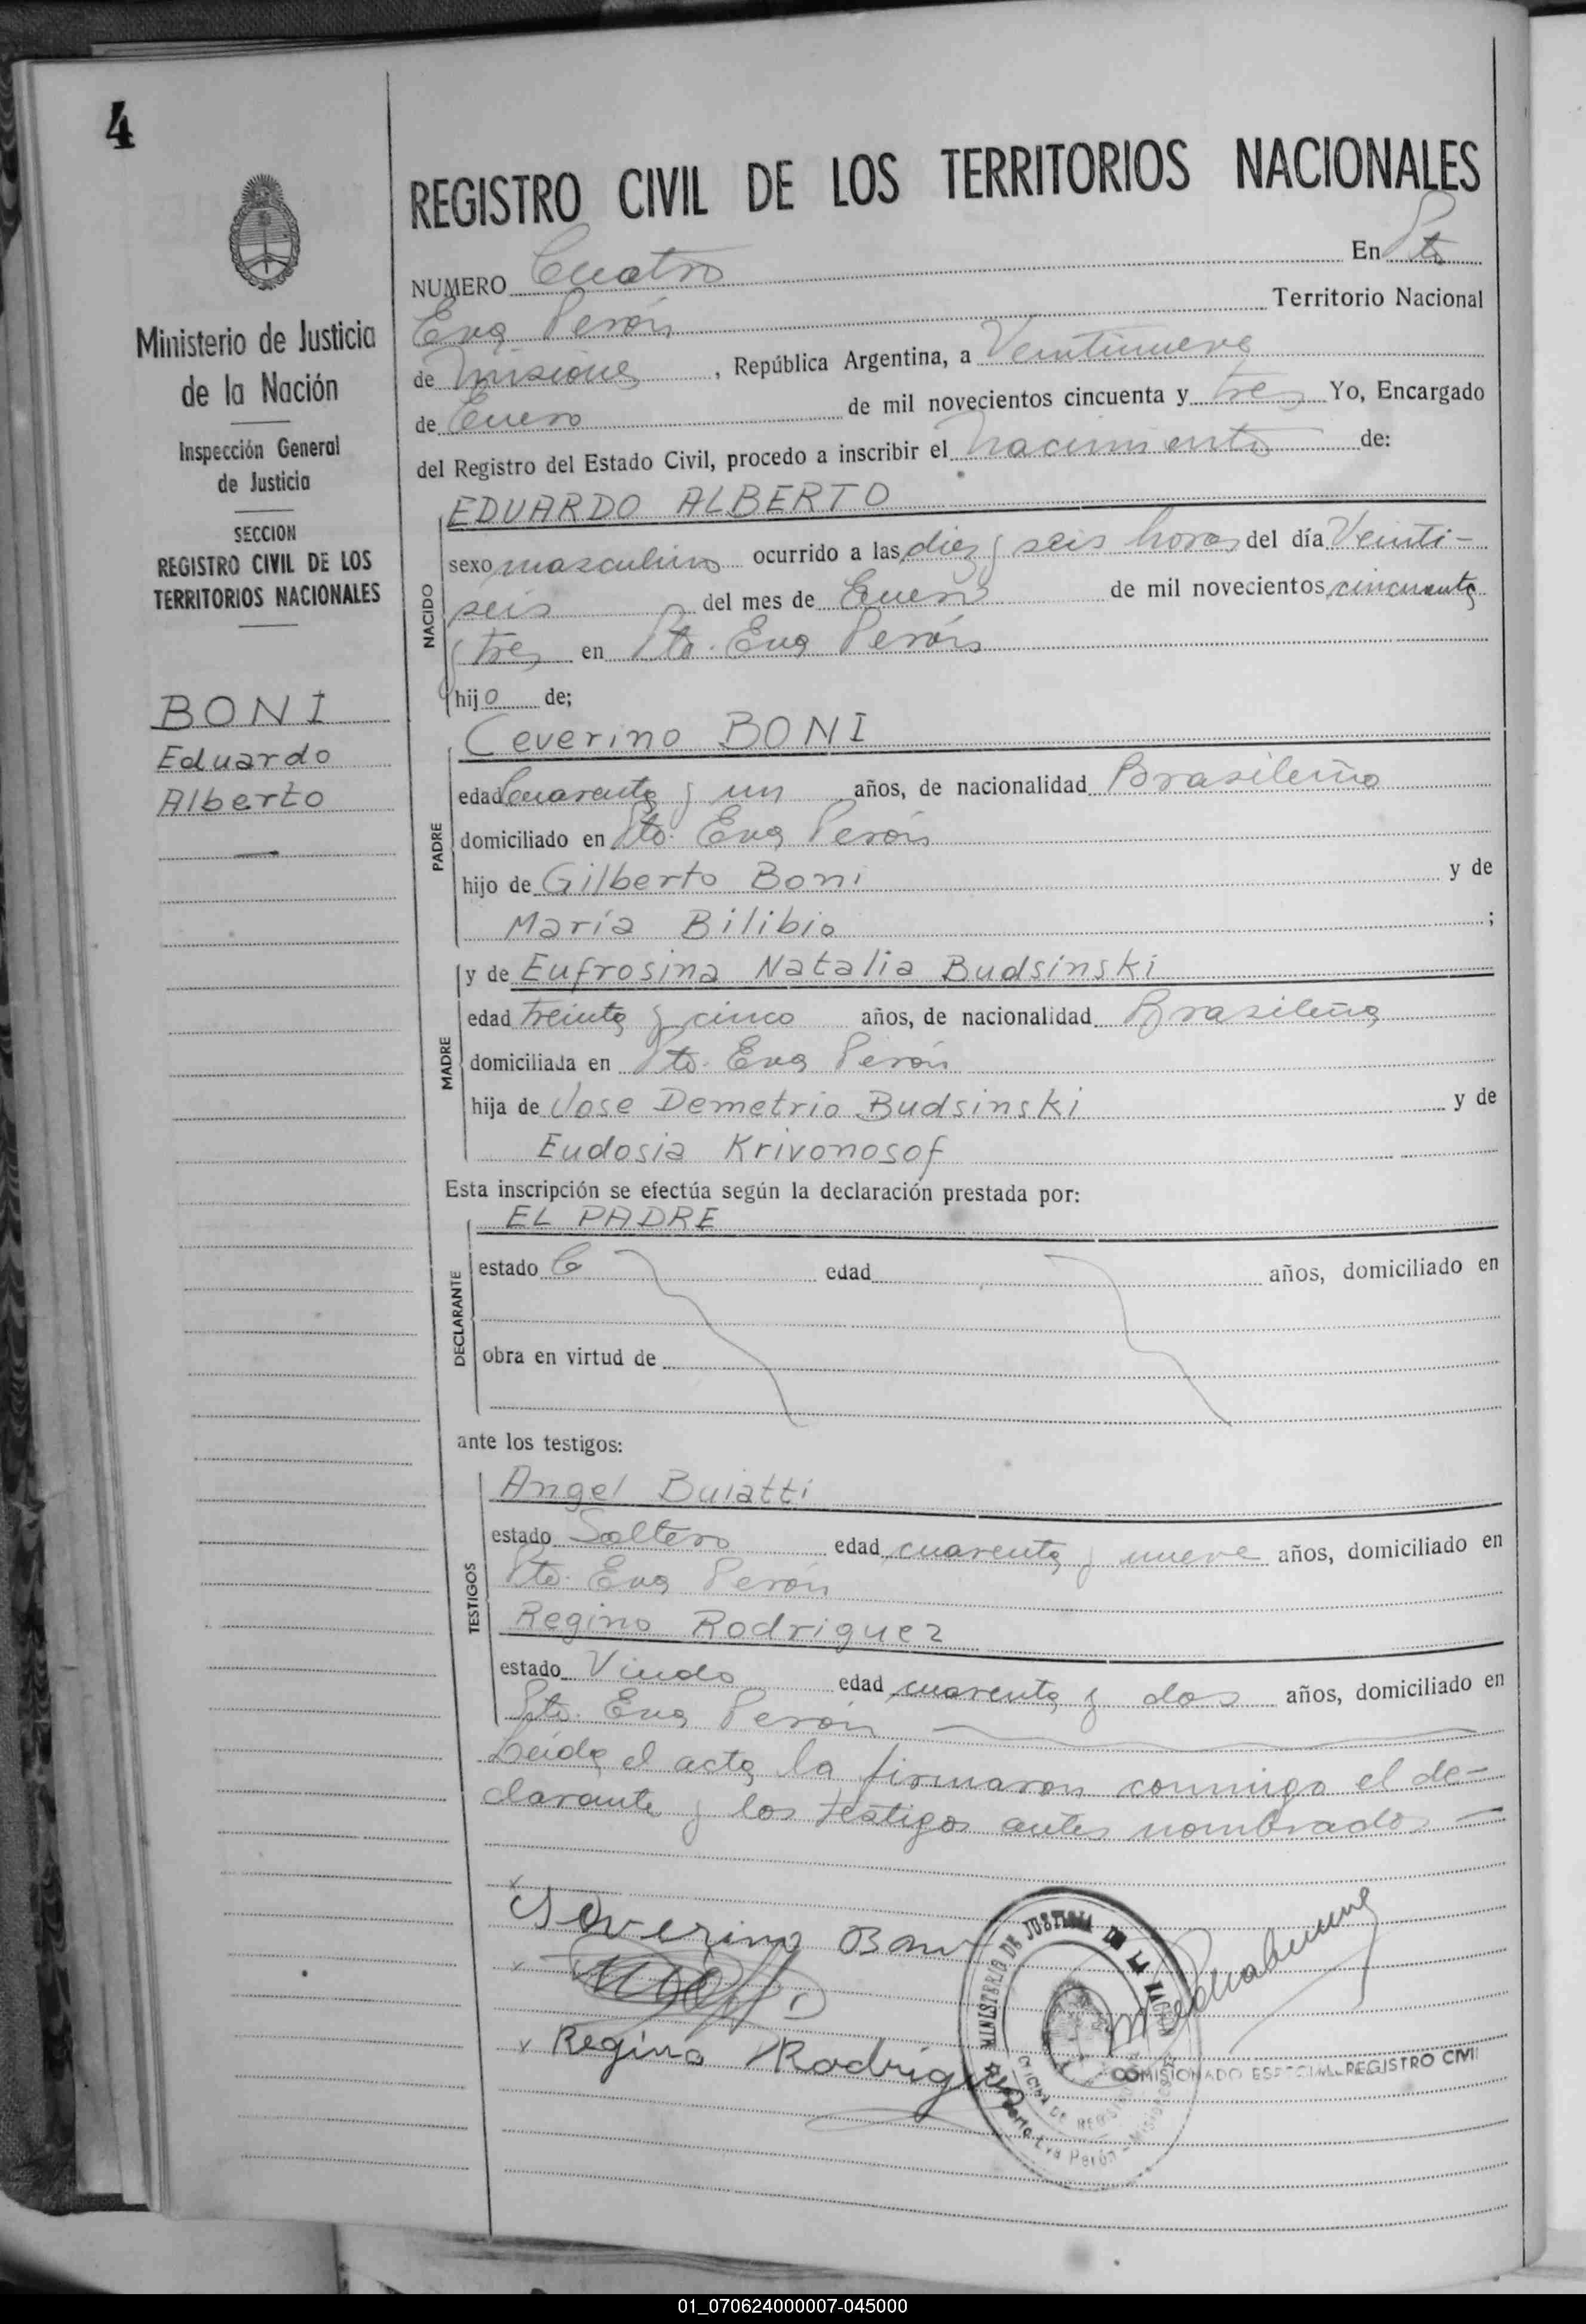 4
Ministerio de Justicia
de la Nación
Inspección General
de Justicia
SECCION
REGISTRO CIVIL DE LOS
TERRITORIOS NACIONALES
BONI
Eduardo
Alberto
REGISTRO CIVIL DE LOS TERRITORIOS NACIONALES
NUMERO Cuatro En Pto
Eva Perón Territorio Nacional
de Misiones, República Argentina, a Veintinueve
de Enero de mil novecientos cincuenta y tres Yo, Encargado
del Registro del Estado Civil, procedo a inscribir el nacimiento de:
NACIDO
EDUARDO ALBERTO
sexo masculino ocurrido a las diez y seis horas del día Veinti-
seis del mes de Enero de mil novecientos cincuenta
y tres en Pto. Eva Perón
hijo de;
PADRE
Ceverino BONI
edad Cuarenta y un años, de nacionalidad Brasileño
domiciliado en Pto. Eva Perón
hijo de Gilberto Boni y de
María Bilibio ;
MADRE
y de Eufrosina Natalia Budsinski
edad treinta y cinco años, de nacionalidad Brasileña
domiciliada en Pto. Eva Perón
hija de Jose Demetrio Budsinski y de
Eudosia Krivonosof
Esta inscripción se efectúa según la declaración prestada por:
DECLARANTE
EL PADRE
estado C edad años, domiciliado en
obra en virtud de
ante los testigos:
TESTIGOS
Angel Buiatti
estado Soltero edad cuarenta y nueve años, domiciliado en
Pto. Eva Perón
Regino Rodriguez
estado Viudo edad cuarenta y dos años, domiciliado en
Pto. Eva Perón
Leída el acta, la firmaron conmigo el de-
clarante y los testigos antes nombrados
x Severino Boni
x
x Regino Rodriguez
MINISTERIO DE JUSTICIA DE LA NACION
OFICINA DE REGISTRO
Puerto Eva Perón - Misiones
COMISIONADO ESPECIAL REGISTRO CIVIL
01_070624000007-045000